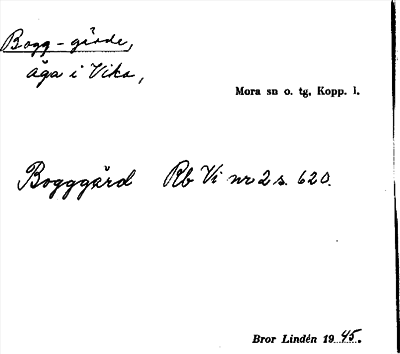 Bogg-gärde,
äga i Vika,
Mora sn o. tg, Kopp. l.
Bogggärd Rb Vi nr 2 s. 620.
Bror Lindén 1945.